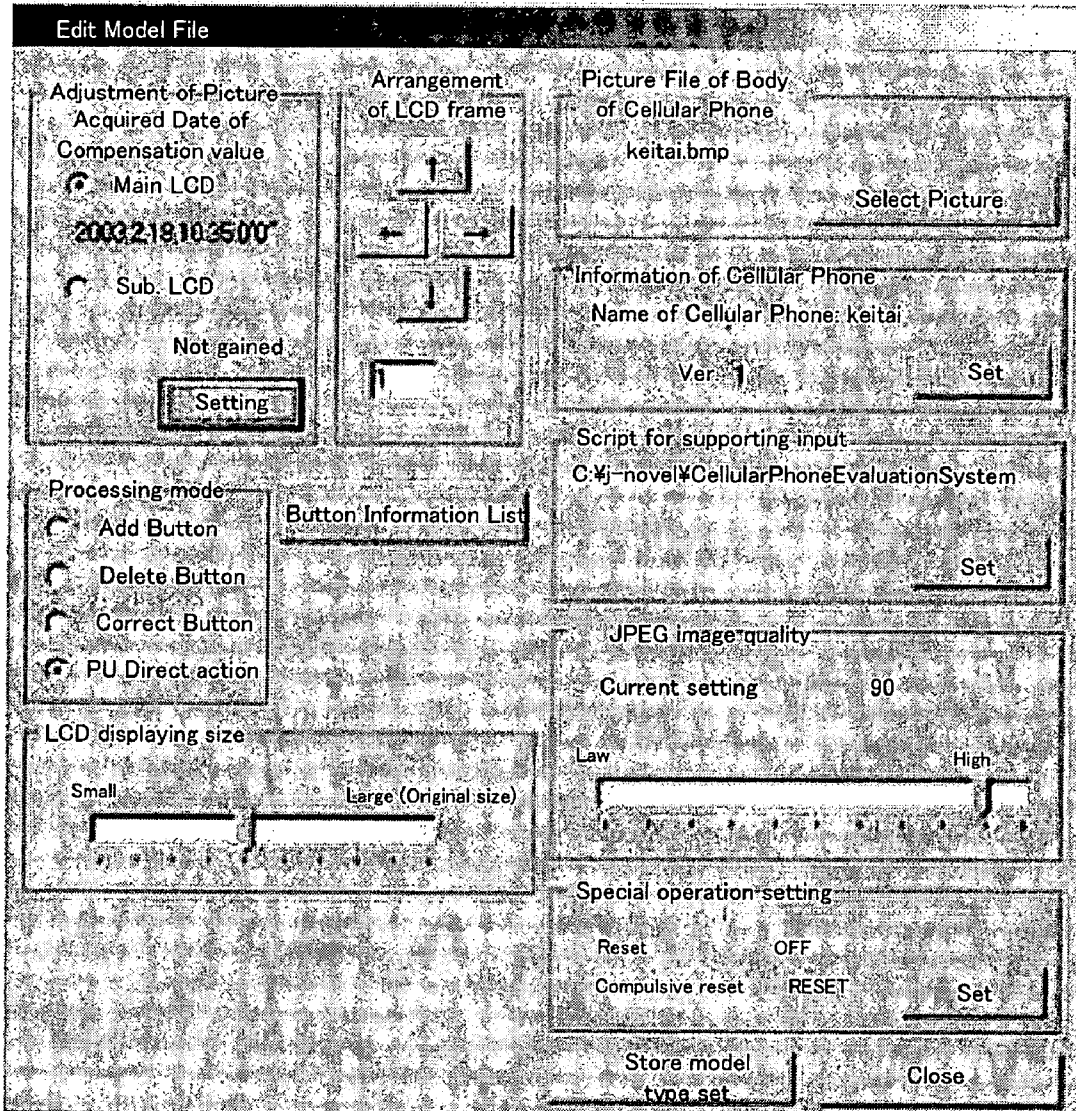 Edit Model File
Adjustment of Picture
Acquired Date of
Compensation value
Main LCD
2003.2.19.10:35'00"
Sub. LCD
Not gained
Setting
Arrangement
of LCD frame
↑
← →
↓
1
Picture File of Body
of Cellular Phone
keitai.bmp
Select Picture
Information of Cellular Phone
Name of Cellular Phone: keitai
Ver. 1
Set
Script for supporting input
C:¥j-novel¥CellularPhoneEvaluationSystem
Set
Processing mode
Add Button
Delete Button
Correct Button
PU Direct action
Button Information List
JPEG image quality
Current setting 90
Law High
LCD displaying size
Small Large (Original size)
Special operation setting
Reset OFF
Compulsive reset RESET
Set
Store model
type set
Close